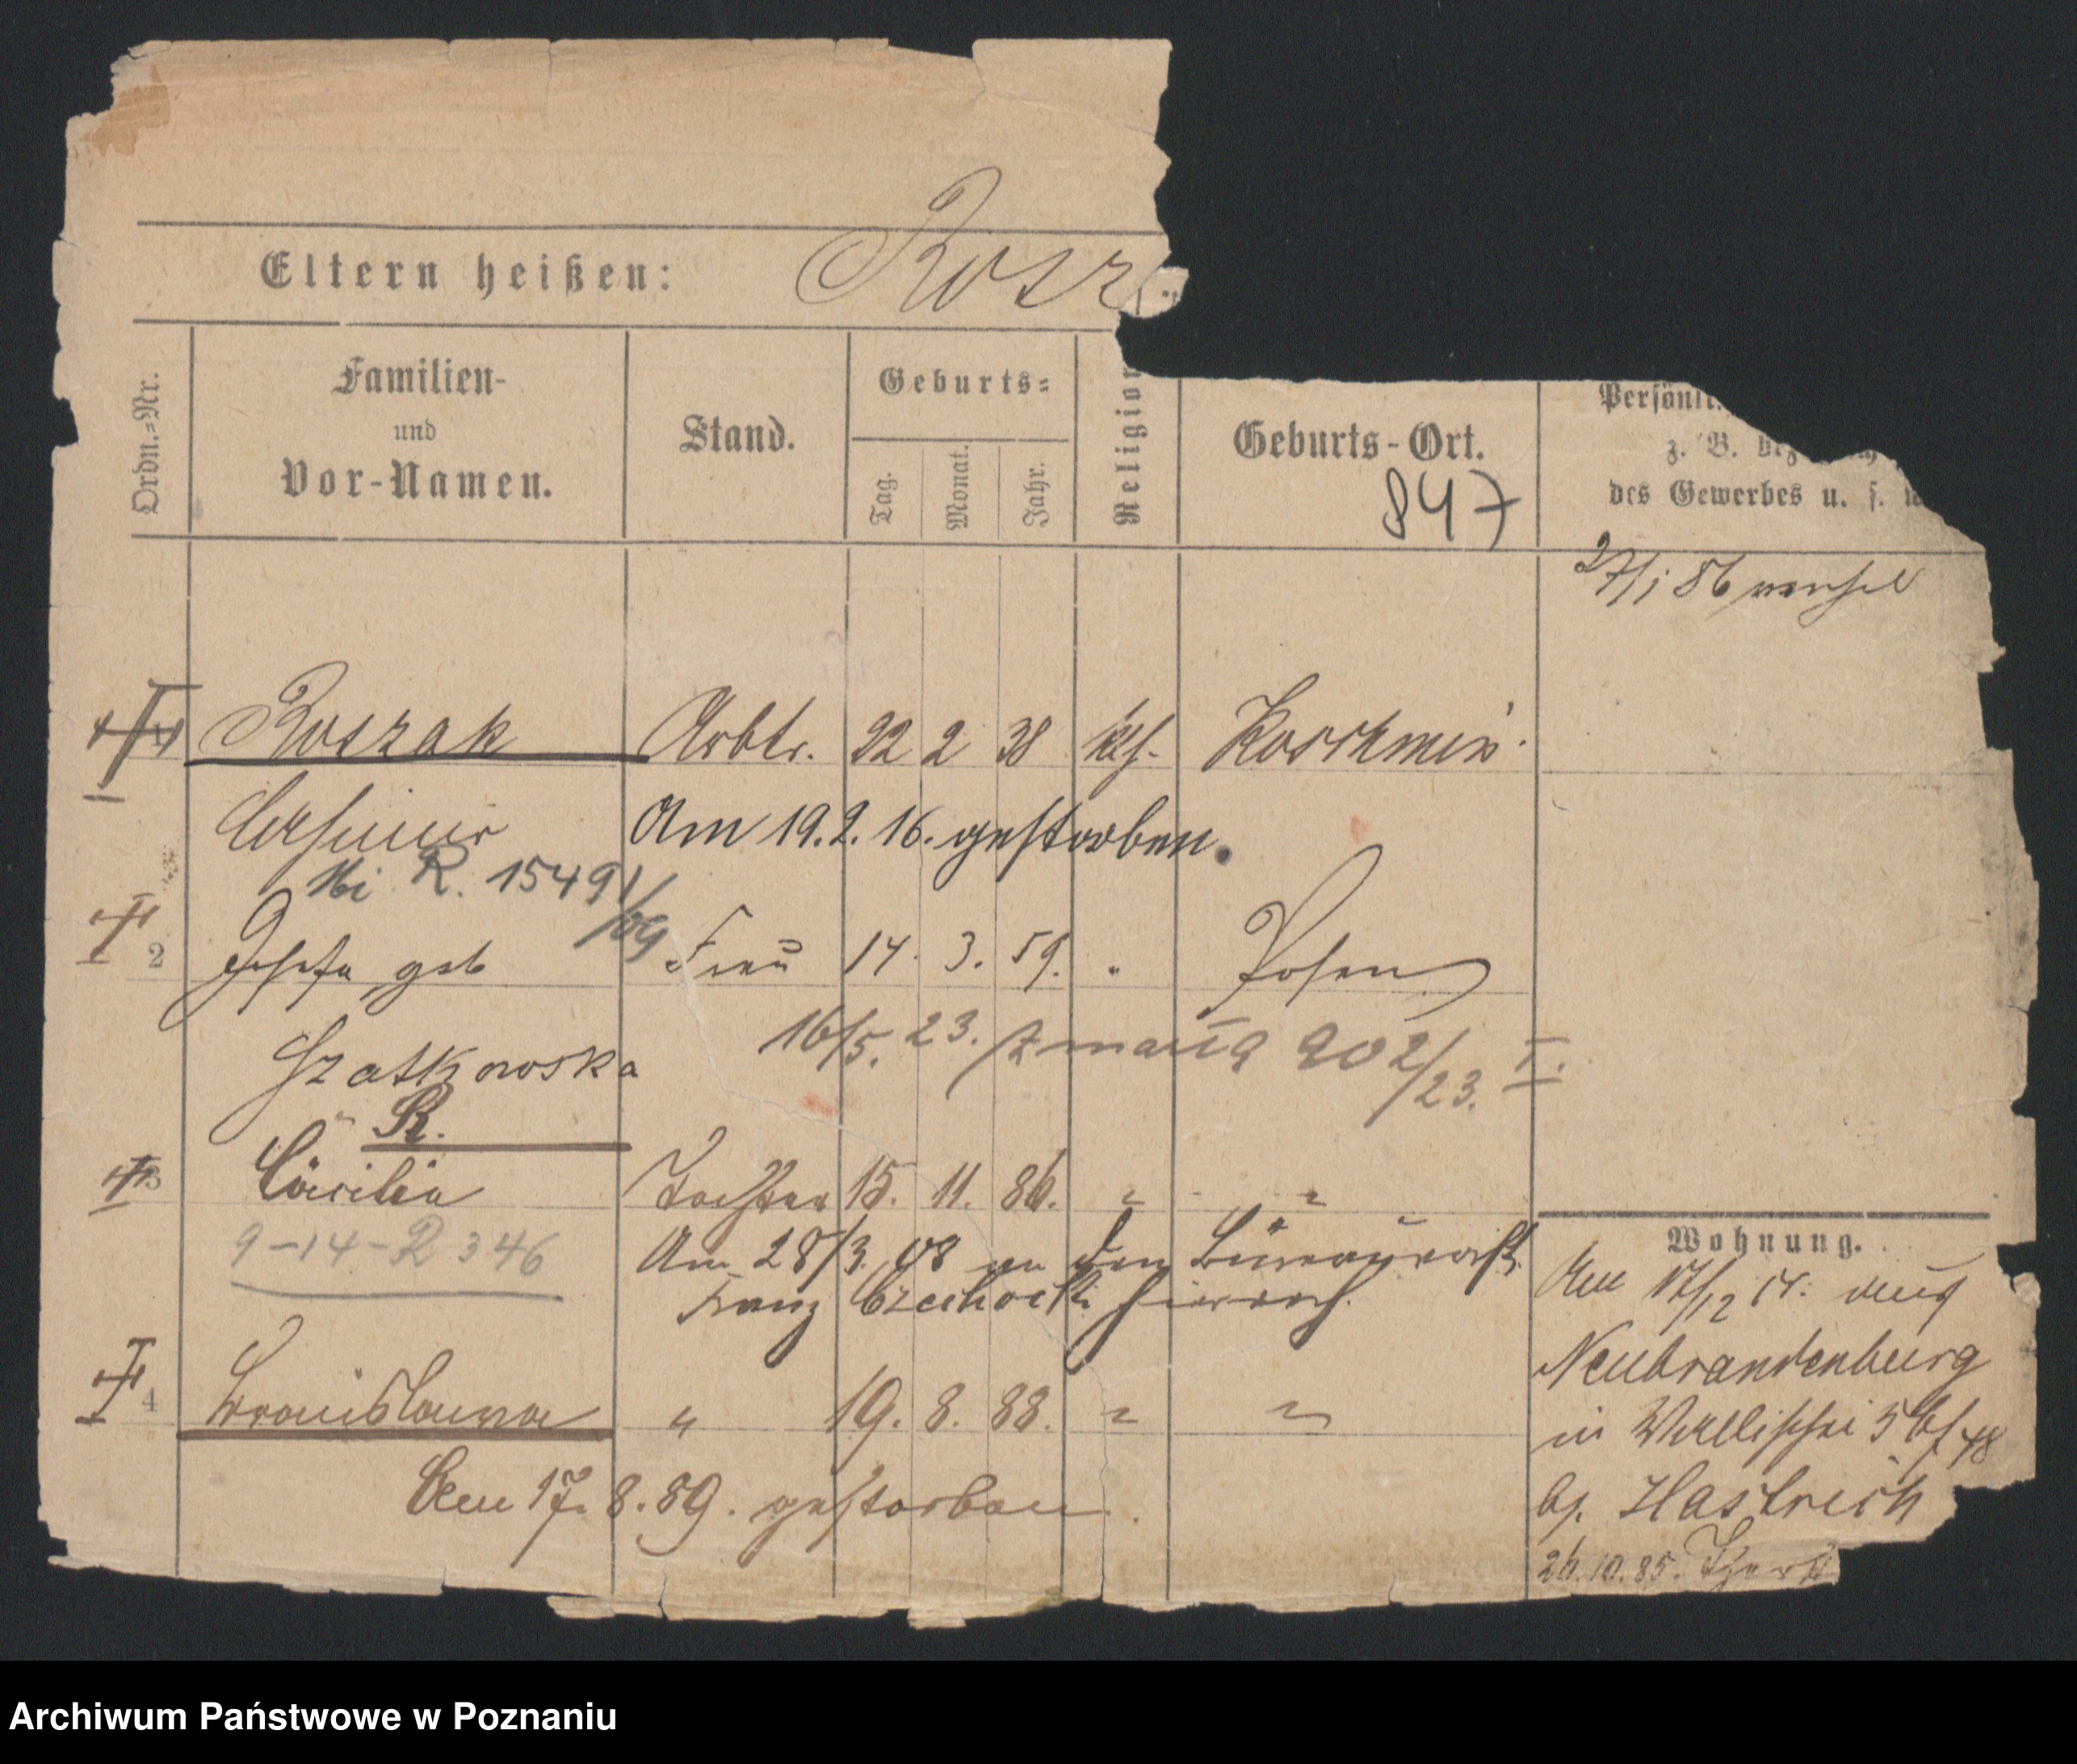 Eltern heißen: Rosz
Ordn.=Nr.
Familien-
und
Vor-Namen.
Stand.
Geburts=
Tag.
Monat.
Jahr.
Religion
Geburts-Ort.
847
Persönl
z. B. bez
des Gewerbes u. s.
27/1 86
Roszak Arbtr. 22 2 38 kth. Koschmin
Am 19. 2. 16. gestorben.
R. 15491/09
2 Josefa geb Frau 14. 3. 59. " Posen
Szatkowska
16/5. 23. zmarła 902/23. I.
R.
3 Cäcilia Tochter 15. 11. 86. " "
9-14-R 346
Am 28/3. 08 an den
Franz
4 Bronislawa " 19. 8. 88. " "
Am 17. 8. 89. gestorben.
Wohnung.
Am 17/12 14. aus
Neubrandenburg
in Wallischei 5 48
bj. Hastreich
26.10.85.
Archiwum Państwowe w Poznaniu